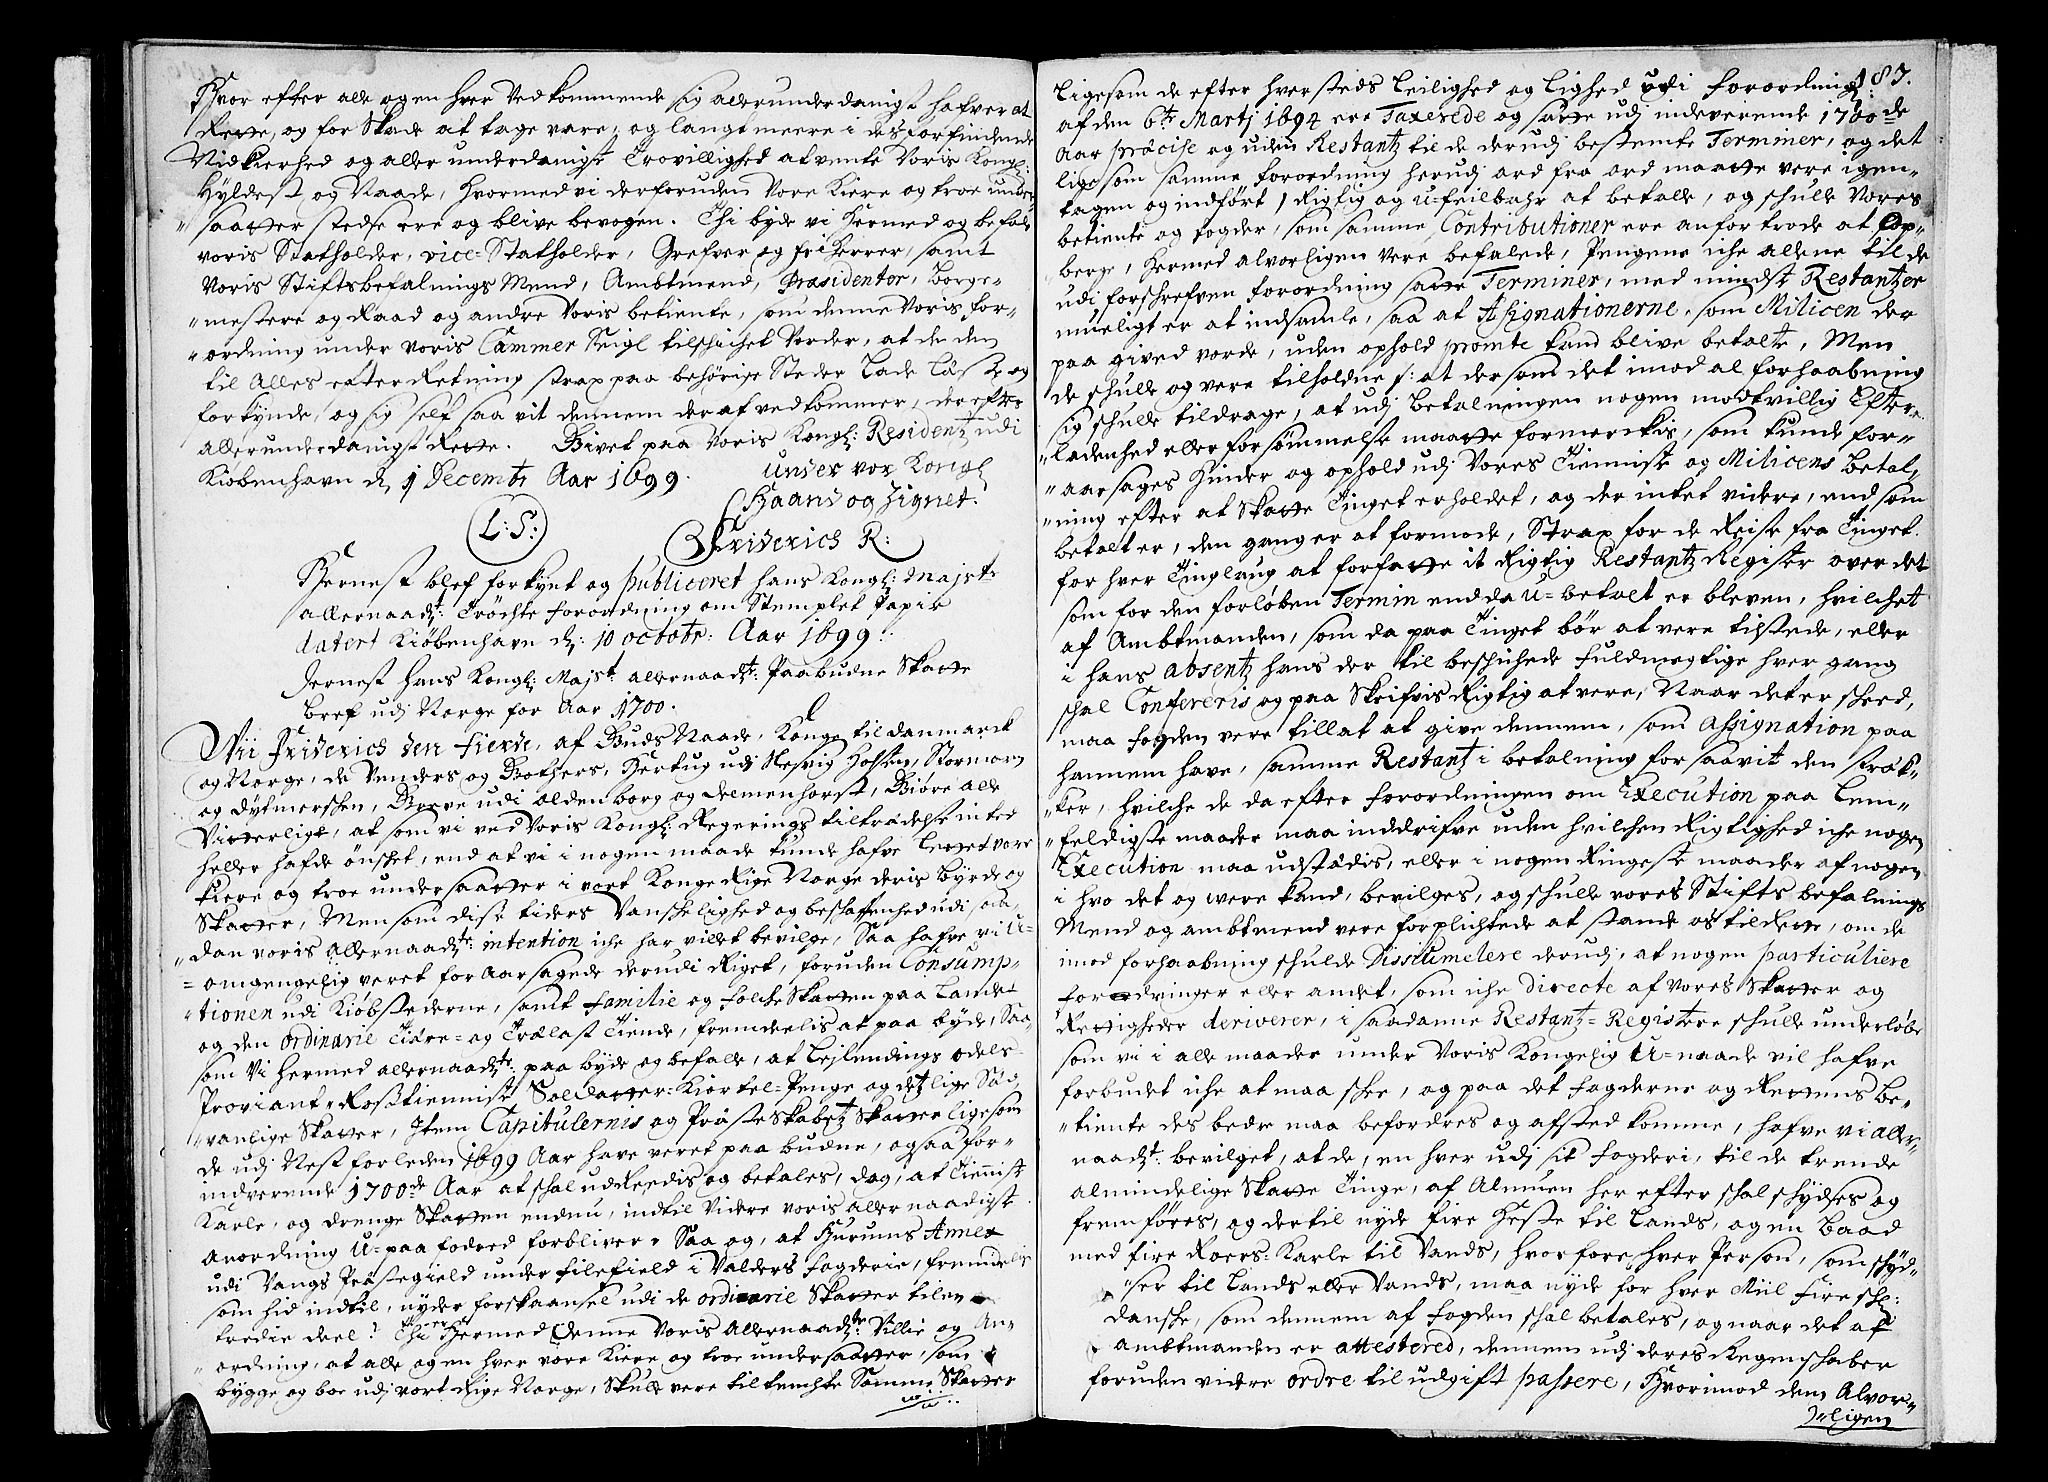 Hvor efter alle og en hver Vedkommende sig allerunderdanigst hafver at
Rette, og for Skade at tage vare, og langt meere i des forfindende
Nidkierhed og aller underdanigst Troevillighed at vente Voris Kongl:
Hyldest og Naade, hvormed vi derforuden Vore Kiere og troe under
saatter stedse ere og blive bevogen. Thi byde vi Hermed og befale
voris Statholder, vice=Statholder, Grefver og friherrer, samt
Voris Stiftsbefalnings Mend, Ambtmend, Præsidenter, Borge-
mestere og Raad og andre Voris betiente, som denne Voris for-
ordning under voris Cammer Seigl tilschichet Vorder, at de den
til Alles efterRetning strax paa behörige Steder Lade Læse og
forkynde, og sig self saa vit dennem deraf vedkommer, derefter
allerunderdanigst Rette. Givet paa Voris Kongl: Residentz udi
Kiöbenhavn d. 9 Decembr Aar 1699. under vor Kongl
Haand og Zignet.
L: S: Friderich R:
Hernest blef forkynt og publiceret hans Kongl: Majsts
allernaadt: Tröchte forordning om Stemplet Papir
datert Kiöbenhavn d: 10 octobr: Aar 1699.
dernest hans Kongl: Majst: allernaadt: Paabudne Skatte
bref udj Norge for Aar 1700.
Wii Friderich den fierde, af Guds Naade, Konge til danmarck
og Norge, de Venders og Gothers, Hertug udj Slesvig Holsten, Stormarn
og dytmerschen, Greve udi oldenborg og delmenhorst, Giöre alle
Vitterligt, at som vi ved Voris Kongl: Regerings tiltrædelse intet
heller hafde önschet, end at vi i nogen maade kunde hafve lettet vore
kiere og troe undersaatter i vort Konge Rige Norge deris byrde og
Skatter, Men som disse tiders Vanschelighed og beschaffenhed udi saa-
dan voris allernaadte: intention iche har villet bevilge, Saa hafve vi U-
omgengelig veret for Aarsagede derudi Riget, foruden Consump-
tionen udi Kiöbstederne, samt familie og folche Skatten paa Landet
og den ordinarie Tiære= og Trælast Tiende, fremdeelis at paa byde, Saa-
som Vi hermed allernaadte: paa byde og befalle, at Leylendings odels
Proviant, Rosstienniste Soldatter=Kiortel=Penge og deslige Sæd-
vanlige Skatter, Item Capitulernis og Præsteskabetz Skatter ligesom
de udj Nest forleden 1699 Aar have veret paa budne, ogsaa for
indverende 1700de Aar at schal udReedis og betales, dog, at Tienniste
Karle, og drenge Skatten endnu, indtil Videre voris aller naadigste
Anordning U=paa fodred forbliver, Saa og, at Hurums Annex
udi Vangs Præstegield under filefield i Valders fogderie, fremdeelis
som hid indtil, nyder forskaansel udi de ordinarie Skatter til en
tredie deel: Thi er Hermed denne Voris Allernaadte: Villie og An-
ordning, at alle og en hver vore kiere og troe undersaatter, som
bygge og boe udj vort Rige Norge, Skulle vere tiltenchte Samme Skatter

187.
Ligesom de efter hver steds Leilighed og lighed udi forordning
af den 6te Martj 1694 ere Taxerede og satte udj indeverende 1700de
Aar præcise og uden Restantz til de derudj bestemte Terminer, og det
ligesom samme forordning herudj ord fra ord maatte vere igen-
tagen og indfört, Rigtig og u=feilbahr at betale, og schulle Vores
betiente og fogder, som samme Contributioner ere anfortrode at Op-
berge, hermed alvorligen vere befalede, Pengene iche allene til de
udi forschrefven forordning satte Terminer, med mindst Restantzer
mueligt er at indsamle, saa at Assignationerne, som Milicen der
paa gived vorde, uden ophold promte kand blive betalte, Men
de schulle og vere tilholdne: at dersom det imod al forhaabning
sig schulle tildrage, at udj Betalningen nogen modtvillig Efter-
ladenhed eller forsömmelse maatte formerckis, som kunde for-
aarsages hinder og ophold udj Vores Tienniste og Milicens betal-
ning efter at Skatte Tinget er holdet, og der intet videre, end som
betalt er, den gang er at formode, Strax för de Reise fra Tinget
for hver Tinglaug at forfatte it Rigtig Restantz Register over det
som for den forloben Termin endda U=betalt er bleven, hvilchet
af Ambtmanden, som da paa Tinget bör at vere tilstede, eller
i hans absentz hans der til beschichede fuldmegtige hver gang
schal Confereris og paa Skrifvis Rigtig at vere, Naar det er scheed,
maa fogden vere tillat at give dennem, som assignation paa
hannem have, samme Restantz i betalning for saavit den sträk-
ker, hvilche de da efter forordningen om Execution paa lem-
feldigste maader maa inddrifve uden hvilchen Rigtighed iche nogen
Execution maa udstædis, eller i nogen Ringeste maader af nogen
i hvo det og were kand, bevilges, og schulle vores Stifts befalnings
Mend og ambtmend vere forplichtede at stande os til Rette, om de
imod forhaabning schulde Dissumelere derudj, at nogen particuliere
fordringer eller andet, som iche directe af Vores Skatter og
Rettigheder deriverer, i saadanne Restantz=Registere schulle underlöbe
som vi i alle maader under Voris Kongelig U=naade vil hafve
forbudet iche at maa schee, og paa det fogderne og Rettens Be-
tiente des bedre maa befordres og afsted komme, hafve vi aller-
naadt: bevilget, at de, en hver udj sit fogderi, til de trende
almindelige Skatte Tinge, af Almuen her efter schal schydses og
fremföres, og dertil nyde fire Heste til Lands, og en Baad
med fire Roers=Karle til Vands, hvorfore hver Person, som schyd-
ser til Lands eller Vands, maa nyde for hver Miil fire sch:
danske, som dennem af fogden schal betales, og naar det af
ambtmanden er attestered, dennem udj deres Regenschaber
foruden videre ordre til udgift passere, Hvorimod dem Alvor-
ligen